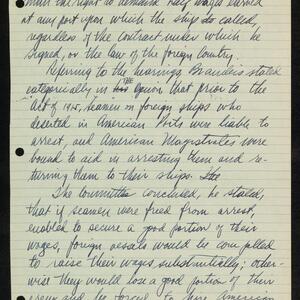 the right to demand half wages earned
at any port upon which the ship so called,
regardless of the contract under which he
signed, or the law of the foreign country.
Referring to the hearings, Brandeis stated
categorically in THE opinion that prior to the
Act of 1915, seamen on foreign ships who
deserted in American Ports were liable to
arrest, and American Magistrates were
bound to aid in arresting them and re-
turning them to their ships. The
The Committee concluded, he stated,
that if seamen were freed from arrest,
enabled to secure a good portion of their
wages, foreign vessels would be compelled
to raise their wages substantially; other-
wise they would lose a good portion of their
and be forced to hire American